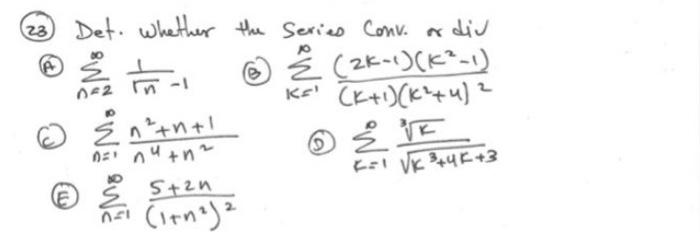 (23) Det. whether the Series Conv. or div
(A) ∞ Σ n=2 1/(√n -1) (B) ∞ Σ K=1 (2K-1)(K²-1)/((K+1)(K²+4)²)
(C) ∞ Σ n=1 (n²+n+1)/(n⁴+n²) (D) ∞ Σ K=1 ∛K/√(K³+4K+3)
(E) ∞ Σ n=1 (5+2n)/(1+n²)²